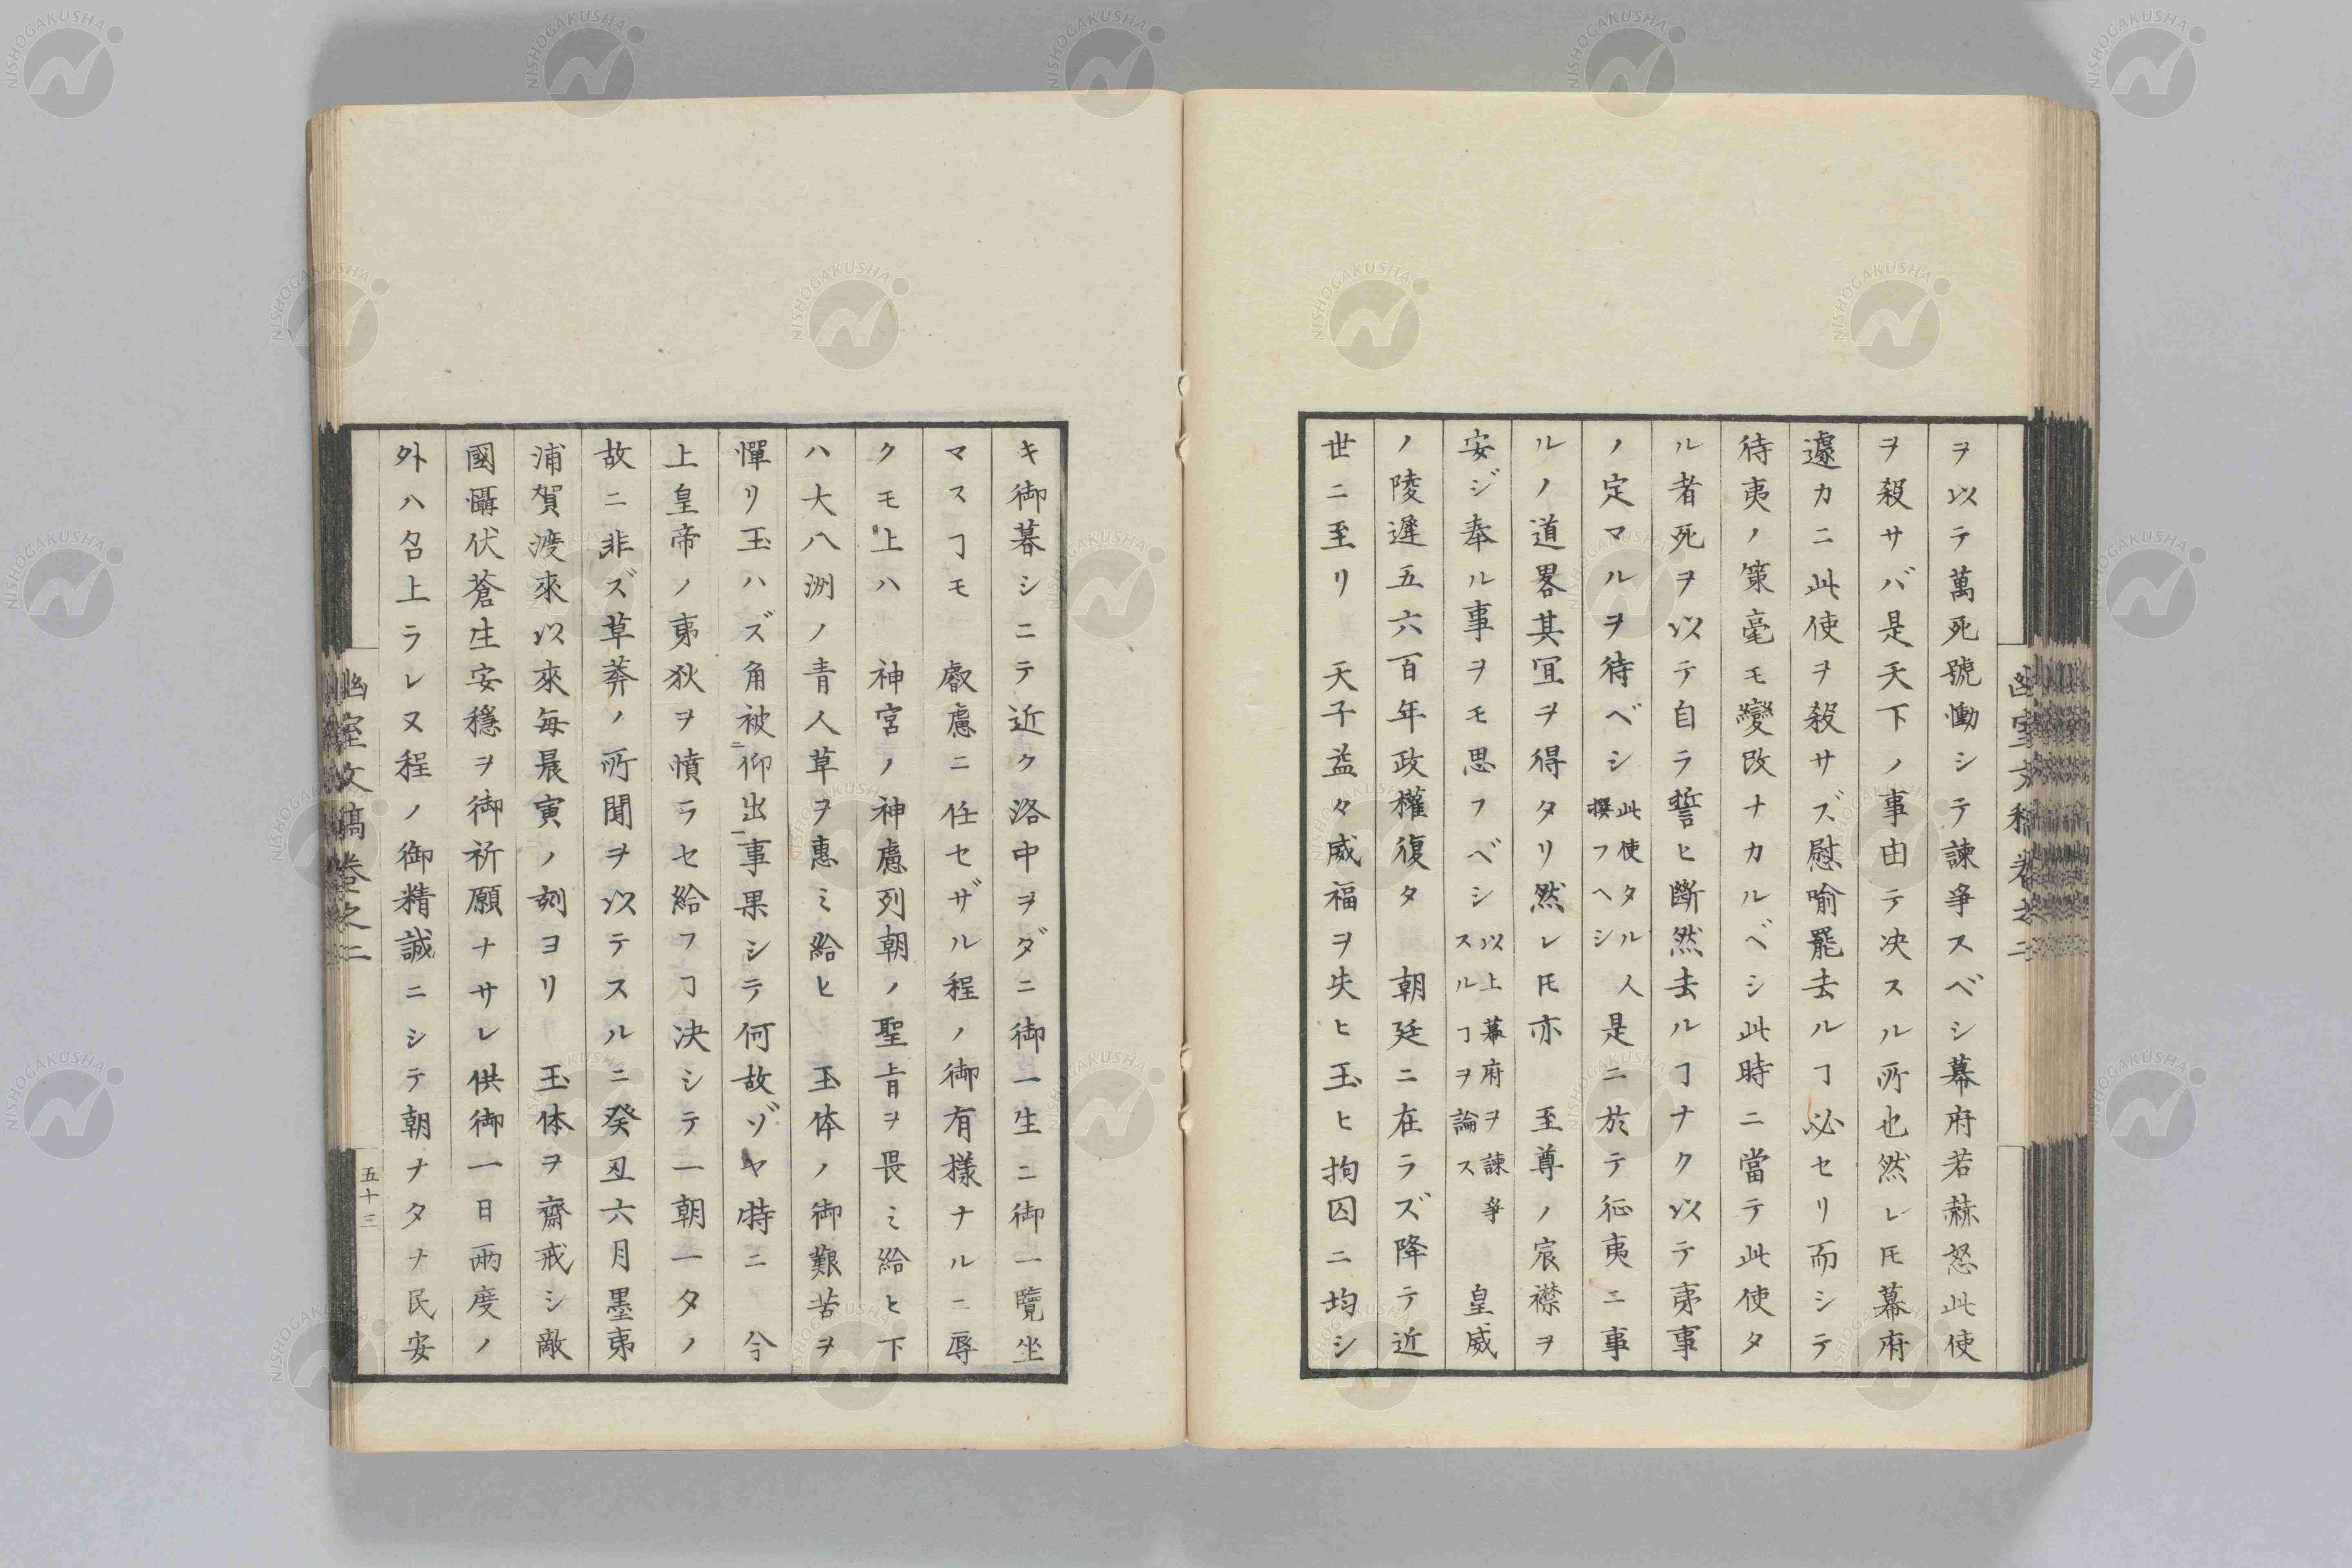 ヲ以テ萬死號慟シテ諫爭スベシ幕府若赫怒此使
ヲ殺サバ是天下ノ事由テ决スル所也然レ𪜈幕府
遽カニ此使ヲ殺サズ慰喻罷去ルヿ必セリ而シテ
待夷ノ策毫モ變改ナカルベシ此時ニ當テ此使タ
ル者死ヲ以テ自ラ誓ヒ斷然去ルヿナク以テ夷事
ノ定マルヲ待ベシ此使タル人撰フヘシ是ニ於テ征夷ニ事
ルノ道畧其宜ヲ得タリ然レ𪜈亦　至尊ノ宸襟ヲ
安ジ奉ル事ヲモ思フベシ以上幕府ヲ諫爭スルヿヲ論ス　皇威
ノ陵遲五六百年政權復タ　朝廷ニ在ラズ降テ近
世ニ至リ　天子益々威福ヲ失ヒ玉ヒ拘囚ニ均シ
幽室文稿卷之二
キ御暮シニテ近ク洛中ヲダニ御一生ニ御一覽坐
マスヿモ　叡慮ニ任セザル程ノ御有樣ナルニ辱
クモ上ハ　神宮ノ神慮列朝ノ聖旨ヲ畏ミ給ヒ下
ハ大八洲ノ青人草ヲ惠ミ給ヒ　玉体ノ御艱苦ヲ
憚リ玉ハズ角被仰出事果シテ何故ゾヤ特ニ　今
上皇帝ノ夷狄ヲ憤ラセ給フヿ决シテ一朝一タノ
故ニ非ズ草莽ノ所聞ヲ以テスルニ癸丑六月墨夷
浦賀渡來以來每晨寅ノ刻ヨリ　玉体ヲ齋戒シ敵
國懾伏蒼生安穩ヲ御祈願ナサレ供御一日兩度ノ
外ハ召上ラレヌ程ノ御精誠ニシテ朝ナタナ民安
幽室文稿卷之二
五十三
NISHOGAKUSHA